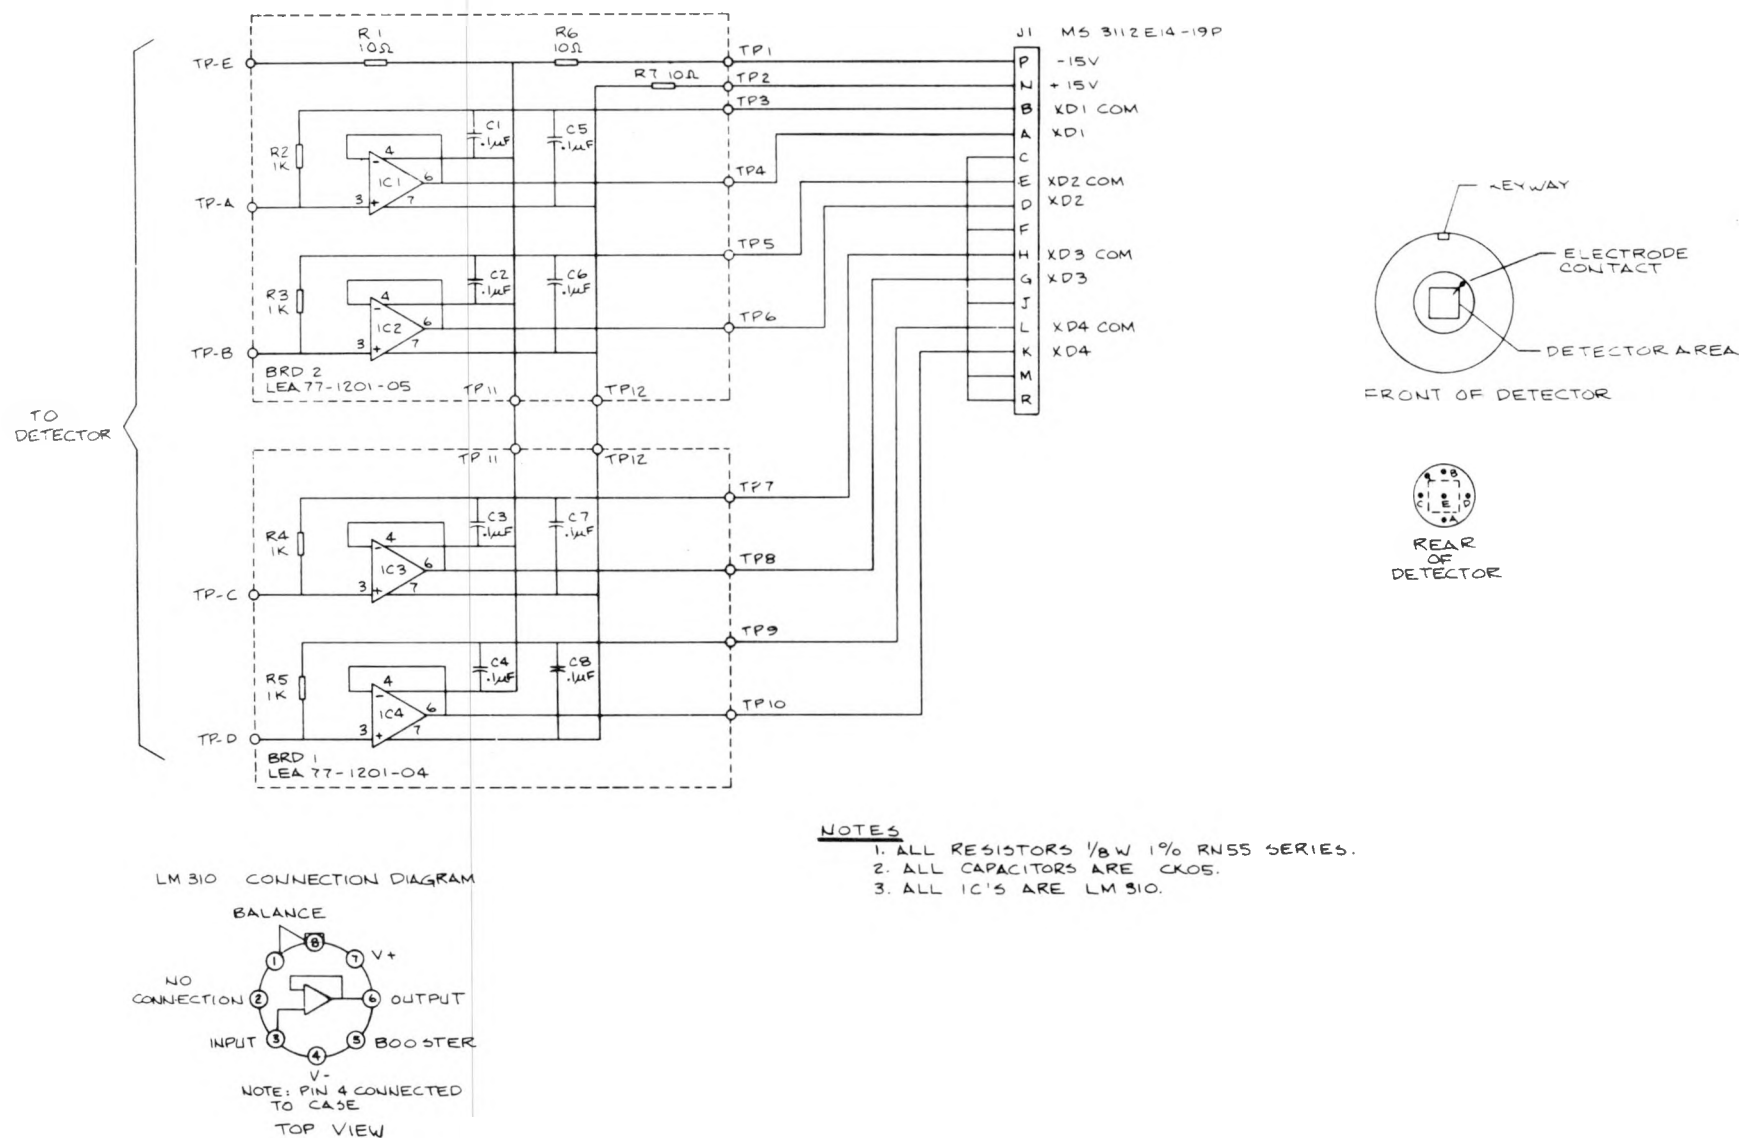 R1
10Ω
R6
10Ω
TP-E
TP1
R7 10Ω
TP2
TP3
R2
1K
C1
.1µF
C5
.1µF
4
-
IC1
6
3
+
7
TP4
TP-A
TP5
R3
1K
C2
.1µF
C6
.1µF
4
-
IC2
6
3
+
7
TP6
TP-B
BRD 2
LEA 77-1201-05
TP11
TP12
TO
DETECTOR
TP 11
TP12
TP7
R4
1K
C3
.1µF
C7
.1µF
4
-
IC3
6
3
+
7
TP8
TP-C
TP9
R5
1K
C4
.1µF
C8
.1µF
4
-
IC4
6
3
+
7
TP10
TP-D
BRD 1
LEA 77-1201-04
J1 MS 3112E14-19P
P -15V
N +15V
B XD1 COM
A XD1
C
E XD2 COM
D XD2
F
H XD3 COM
G XD3
J
L XD4 COM
K XD4
M
R
KEYWAY
ELECTRODE
CONTACT
DETECTOR AREA
FRONT OF DETECTOR
B
C E D
A
REAR
OF
DETECTOR
NOTES
1. ALL RESISTORS 1/8 W 1% RN55 SERIES.
2. ALL CAPACITORS ARE CK05.
3. ALL IC'S ARE LM 310.
LM 310 CONNECTION DIAGRAM
BALANCE
8
1
7 V+
NO
CONNECTION 2
6 OUTPUT
INPUT 3
5 BOOSTER
4
V-
NOTE: PIN 4 CONNECTED
TO CASE
TOP VIEW